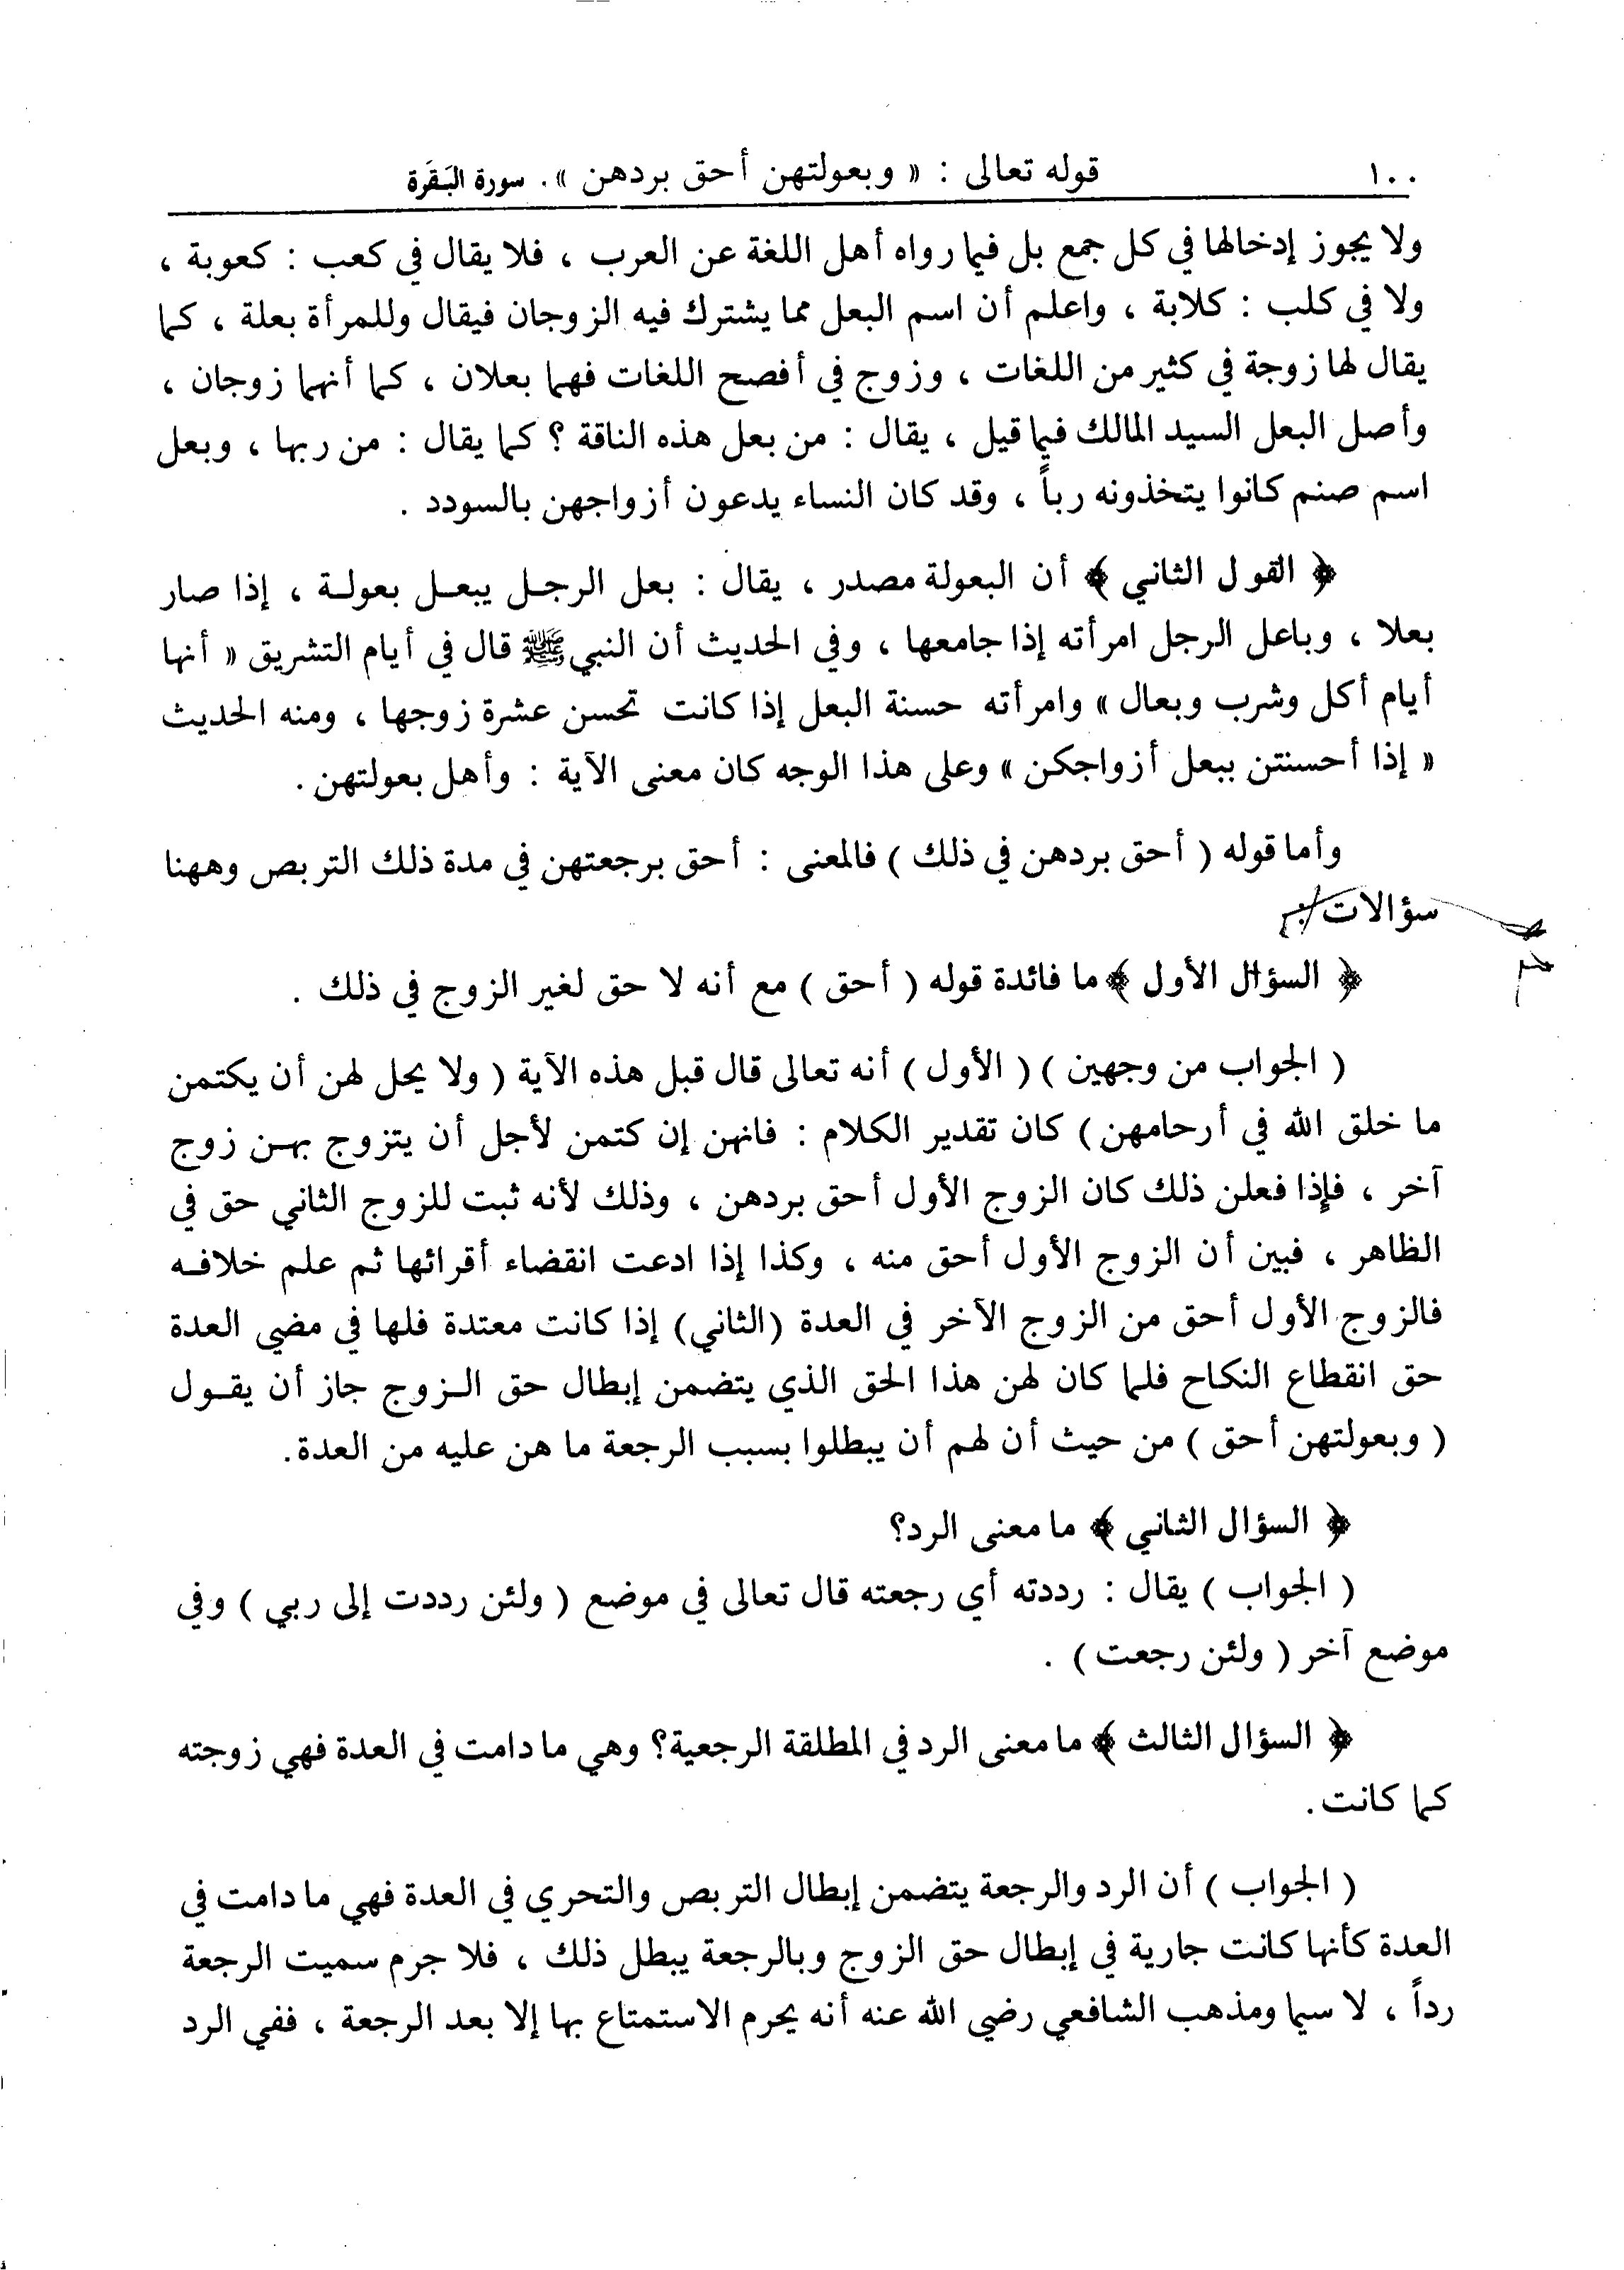 ١٠٠ قوله تعالى : « وبعولتهن أحق بردهن ». سورة البَقَرة
ولا يجوز إدخالها في كل جمع بل فيما رواه أهل اللغة عن العرب ، فلا يقال في كعب : كعوبة ،
ولا في كلب : كلابة ، واعلم أن اسم البعل مما يشترك فيه الزوجان فيقال وللمرأة بعلة ، كما
يقال لها زوجة في كثير من اللغات ، وزوج في أفصح اللغات فهما بعلان ، كما أنهما زوجان ،
وأصل البعل السيد المالك فيما قيل ، يقال : من بعل هذه الناقة ؟ كما يقال : من ربها ، وبعل
اسم صنم كانوا يتخذونه رباً ، وقد كان النساء يدعون أزواجهن بالسودد .
﴿ القول الثاني ﴾ أن البعولة مصدر ، يقال : بعل الرجل يبعل بعولة ، إذا صار
بعلا ، وباعل الرجل امرأته إذا جامعها ، وفي الحديث أن النبي ﷺ قال في أيام التشريق « أنها
أيام أكل وشرب وبعال » وامرأته حسنة البعل إذا كانت تحسن عشرة زوجها ، ومنه الحديث
« إذا أحسنتن ببعل أزواجكن » وعلى هذا الوجه كان معنى الآية : وأهل بعولتهن .
وأما قوله ( أحق بردهن في ذلك ) فالمعنى : أحق برجعتهن في مدة ذلك التربص وههنا
سؤالات
﴿ السؤال الأول ﴾ ما فائدة قوله ( أحق ) مع أنه لا حق لغير الزوج في ذلك .
( الجواب من وجهين ) ( الأول ) أنه تعالى قال قبل هذه الآية ( ولا يحل لهن أن يكتمن
ما خلق الله في أرحامهن ) كان تقدير الكلام : فانهن إن كتمن لأجل أن يتزوج بهن زوج
آخر ، فإذا فعلن ذلك كان الزوج الأول أحق بردهن ، وذلك لأنه ثبت للزوج الثاني حق في
الظاهر ، فبين أن الزوج الأول أحق منه ، وكذا إذا ادعت انقضاء أقرائها ثم علم خلافه
فالزوج الأول أحق من الزوج الآخر في العدة (الثاني) إذا كانت معتدة فلها في مضي العدة
حق انقطاع النكاح فلما كان لهن هذا الحق الذي يتضمن إبطال حق الزوج جاز أن يقول
( وبعولتهن أحق ) من حيث أن لهم أن يبطلوا بسبب الرجعة ما هن عليه من العدة.
﴿ السؤال الثاني ﴾ ما معنى الرد؟
( الجواب ) يقال : رددته أي رجعته قال تعالى في موضع ( ولئن رددت إلى ربي ) وفي
موضع آخر ( ولئن رجعت ) .
﴿ السؤال الثالث ﴾ ما معنى الرد في المطلقة الرجعية؟ وهي ما دامت في العدة فهي زوجته
كما كانت.
( الجواب ) أن الرد والرجعة يتضمن إبطال التربص والتحري في العدة فهي ما دامت في
العدة كأنها كانت جارية في إبطال حق الزوج وبالرجعة يبطل ذلك ، فلا جرم سميت الرجعة
رداً ، لا سيما ومذهب الشافعي رضي الله عنه أنه يحرم الاستمتاع بها إلا بعد الرجعة ، ففي الرد